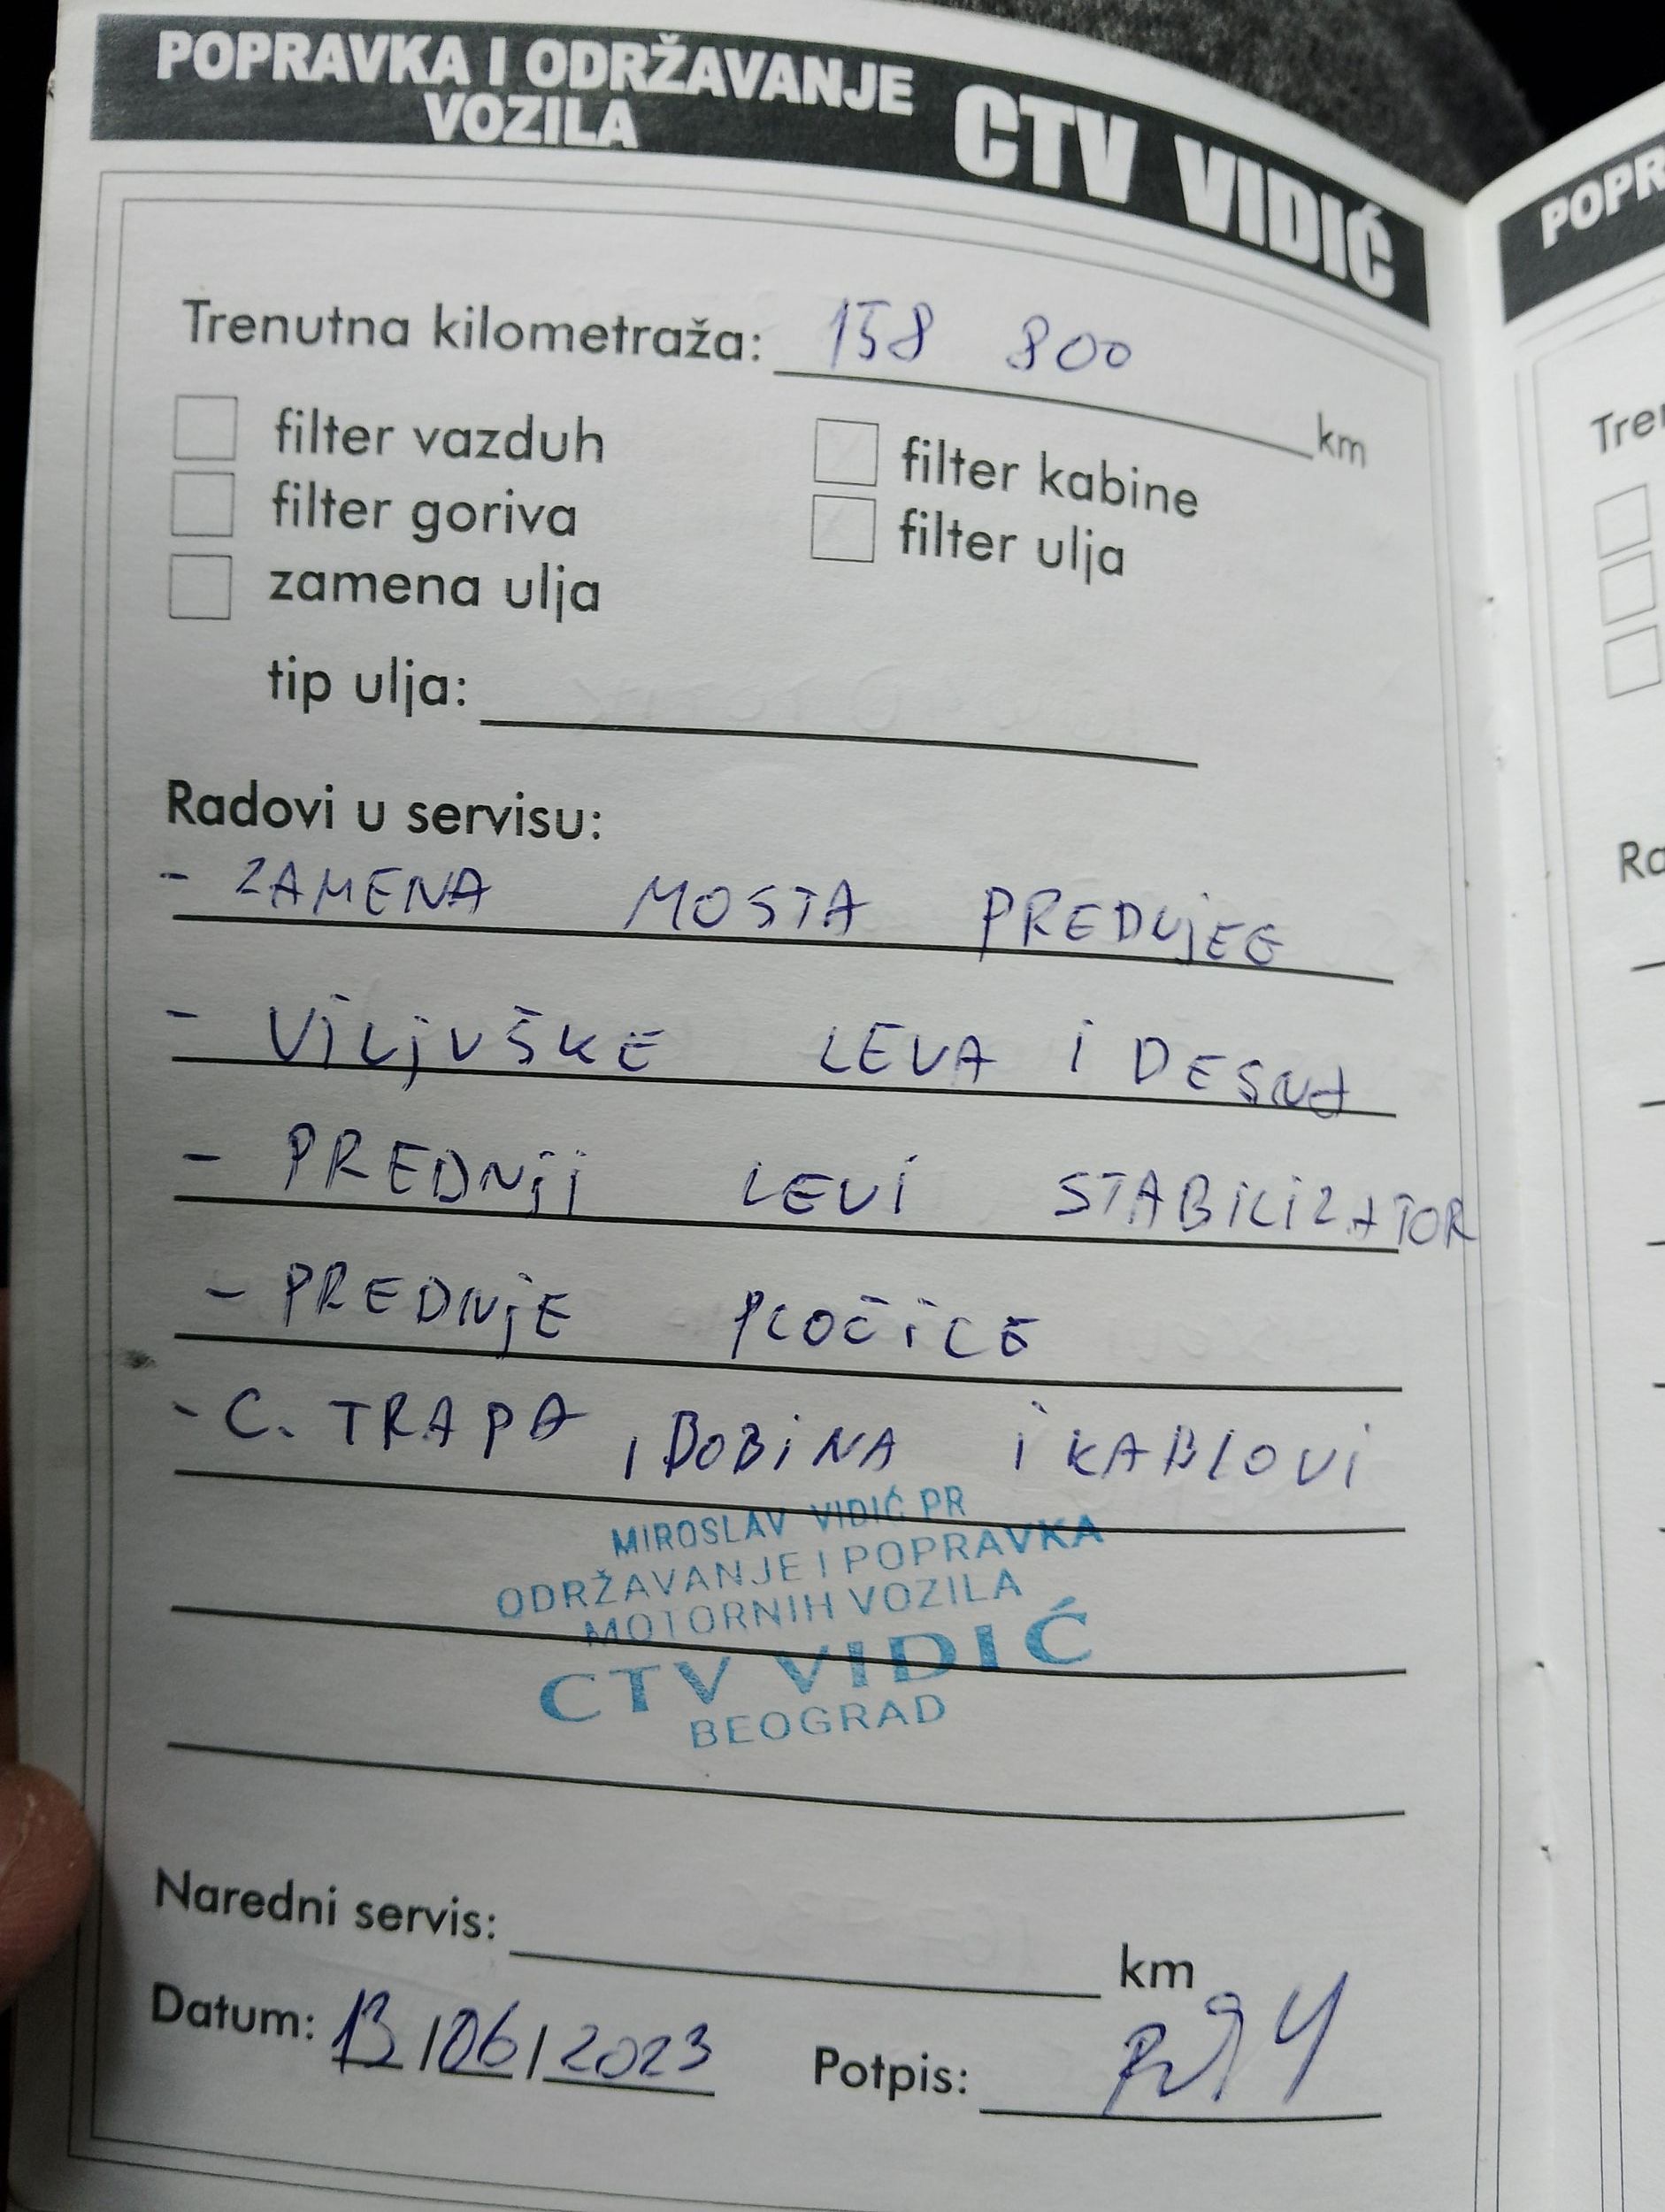 POPRAVKA I ODRŽAVANJE
VOZILA
CTV VIDIĆ
Trenutna kilometraža: 158 800 km
filter vazduh
filter kabine
filter goriva
filter ulja
zamena ulja
tip ulja:
Radovi u servisu:
- ZAMENA MOSTA PREDUJEG
- VILJUŠKE LEVA I DESNA
- PREDNJI LEVI STABILIZATOR
- PREDNJE PLOČICE
- C. TRAPA, BOBINA I KABLOVI
MIROSLAV VIDIĆ PR
ODRŽAVANJE I POPRAVKA
MOTORNIH VOZILA
CTV VIDIĆ
BEOGRAD
Naredni servis: km
Datum: 13/06/2023 Potpis:
POPR
Tre
Ra